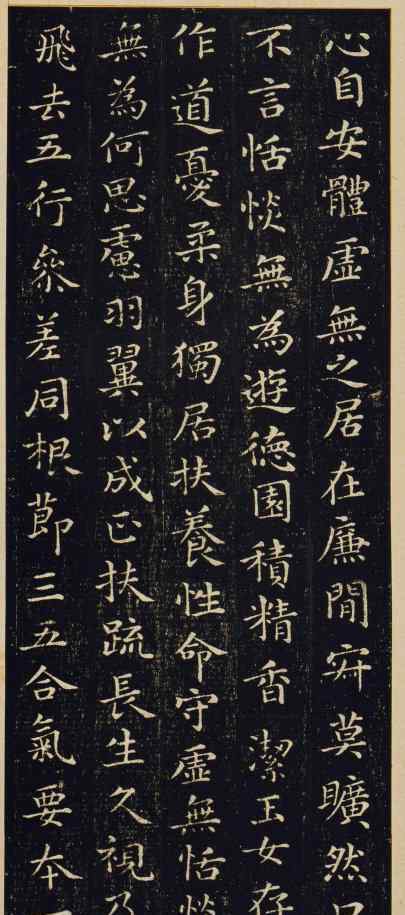 心自安體虛無之居在廉間寂莫曠然口
不言恬惔無為遊德園積精香潔玉女存
作道憂柔身獨居扶養性命守虛無恬惔
無為何思慮羽翼以成正扶疏長生久視乃
飛去五行參差同根節三五合氣要本